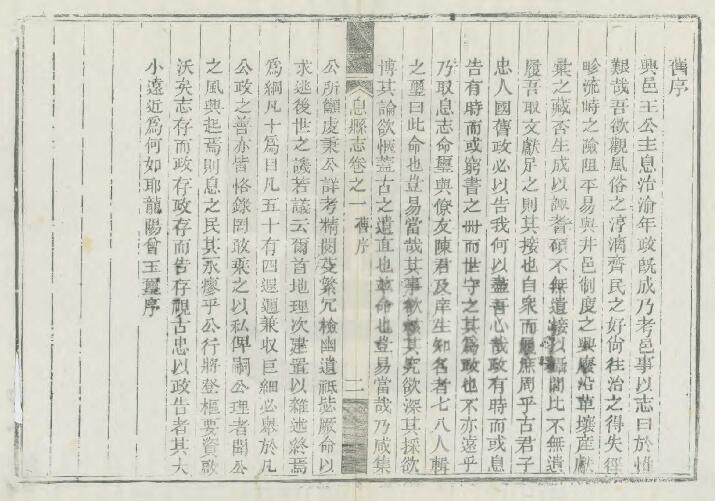 舊序
興邑王公主息治渝年政旣成乃考邑事以志曰於惟
艱哉吾欲觀風俗之淳漓齊民之好尙往治之得失徑
畛流時之險阻平易與井邑制度之興廢沿革壤産獻
彙之藏否生成以諏耆碩不無遺接以聽聞比不無遺
履吾取文獻足之則其接也自衆而庶周乎古君子
忠人國舊政必以告我何以盡吾心哉政有時而或息
告有時而或窮書之冊而世守之其爲政也不亦遠乎
乃取息志命璽與僚友陳君及庠生知名者七八人輯
之璽曰此命也豈易當哉其事欲其究欲深其採欲
博其論欲愜蓋古之遺直也茲命也豈易當哉乃咸集
息縣志卷之一 舊序 二
公所顧處秉公詳考精閱芟繁冗檢幽遺祇毖厥命以
求逃後世之譏若議云爾首地理次建置以雜述終焉
爲綱凡十爲目凡五十有四遐邇兼收巨細必舉於凡
公政之善亦皆恪錄罔敢棄之以私俾嗣公理者聞公
之風興起焉則息之民其永瘳乎公行將登樞要資啟
沃矣志存而政存政存而告存視古忠以政告者其大
小遠近爲何如耶龍陽曾玉璽序